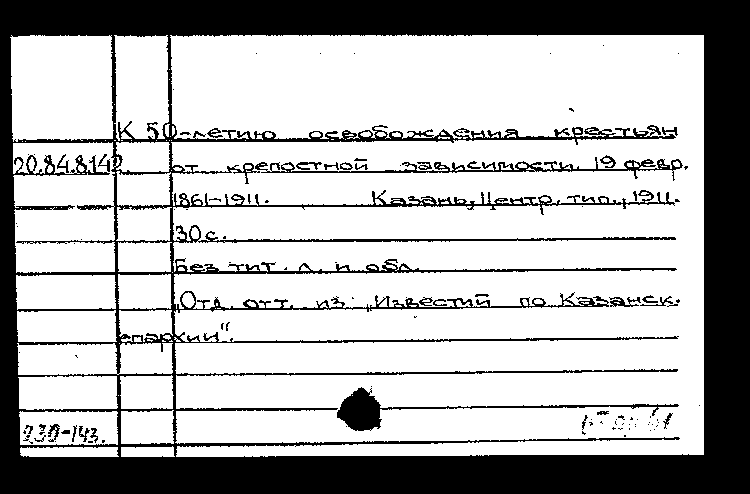 К 50-летию освобождения крестьян
20.84.8.142. от крепостной зависимости. 19 февр.
1861-1911. Казань, Центр. тип., 1911.
30 с.
Без тит. л. и обл.
„Отд. отт. из „Известий по Казанск.
епархии“.
930-143.